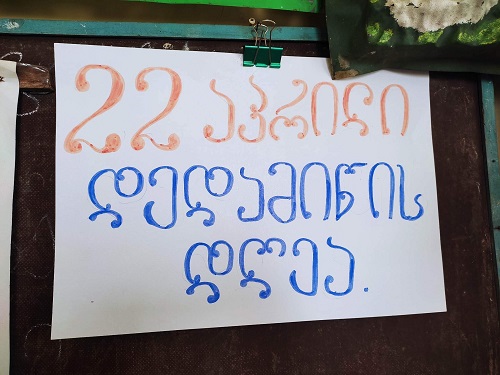 22 აპრილი
დედამიწის
დღეა.